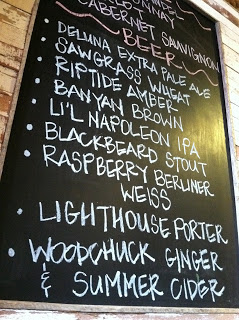 CABERNET SAUVIGNON
BEER
DELUNA EXTRA PALE ALE
SAWGRASS WHEAT
RIPTIDE AMBER
BANYAN BROWN
LI'L NAPOLEON IPA
BLACKBEARD STOUT
RASPBERRY BERLINER
WEISS
LIGHTHOUSE PORTER
WOODCHUCK GINGER
& SUMMER CIDER